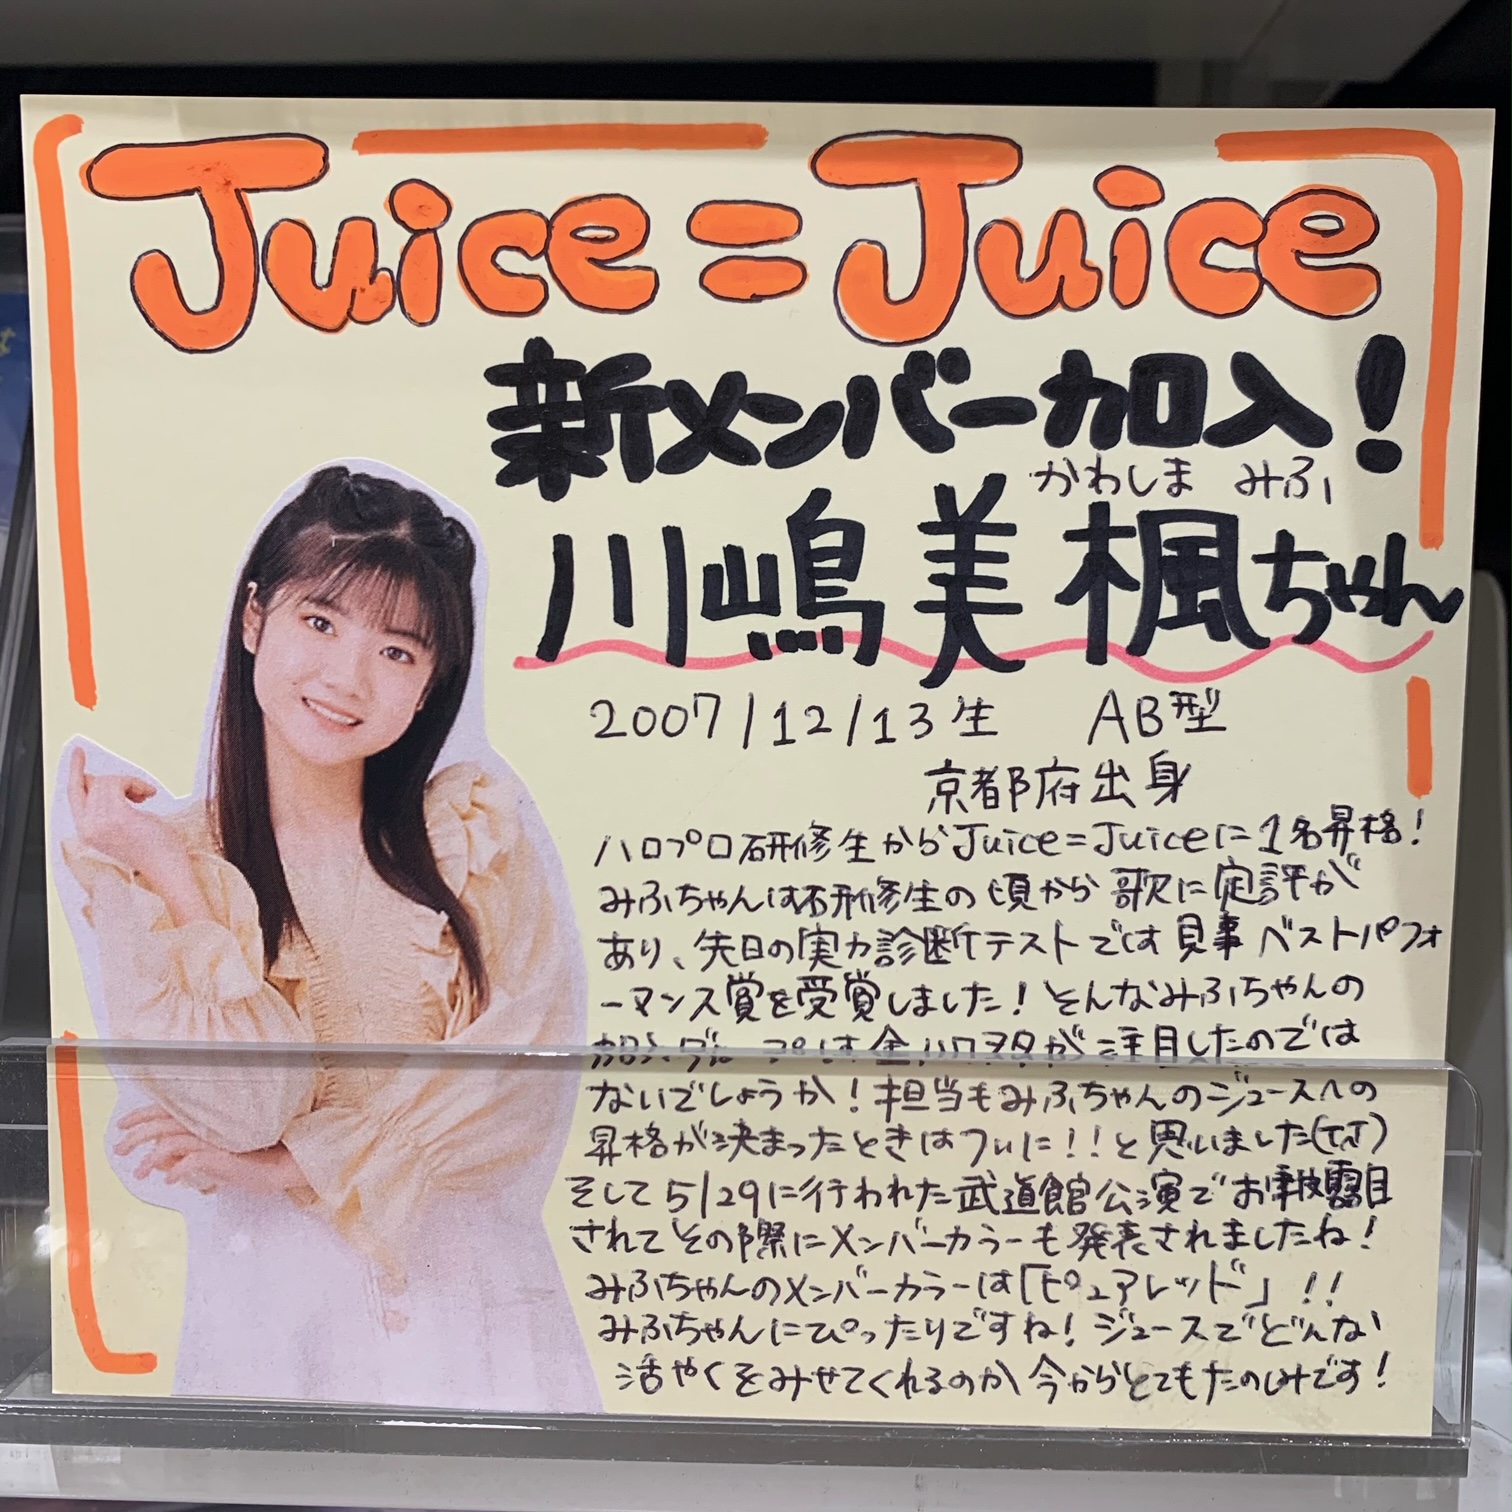 Juice=Juice
新メンバー加入!
かわしま みふ
川嶋美楓ちゃん
2007/12/13生 AB型
京都府出身
ハロプロ研修生からJuice=Juiceに1名昇格!
みふちゃんは研修生の頃から歌に定評が
あり、先日の実力診断テストでは見事ベストパフォ
ーマンス賞を受賞しました!そんなみふちゃんの
加入グループは全ハロヲタが注目したのでは
ないでしょうか!担当もみふちゃんのジュースへの
昇格が決まったときはついに!!と思いました(T.T)
そして5/29に行われた武道館公演でお披露目
されてその際にメンバーカラーも発表されましたね!
みふちゃんのメンバーカラーは「ピュアレッド」!!
みふちゃんにぴったりですね!ジュースでどんな
活やくをみせてくれるのか今からとてもたのしみです!